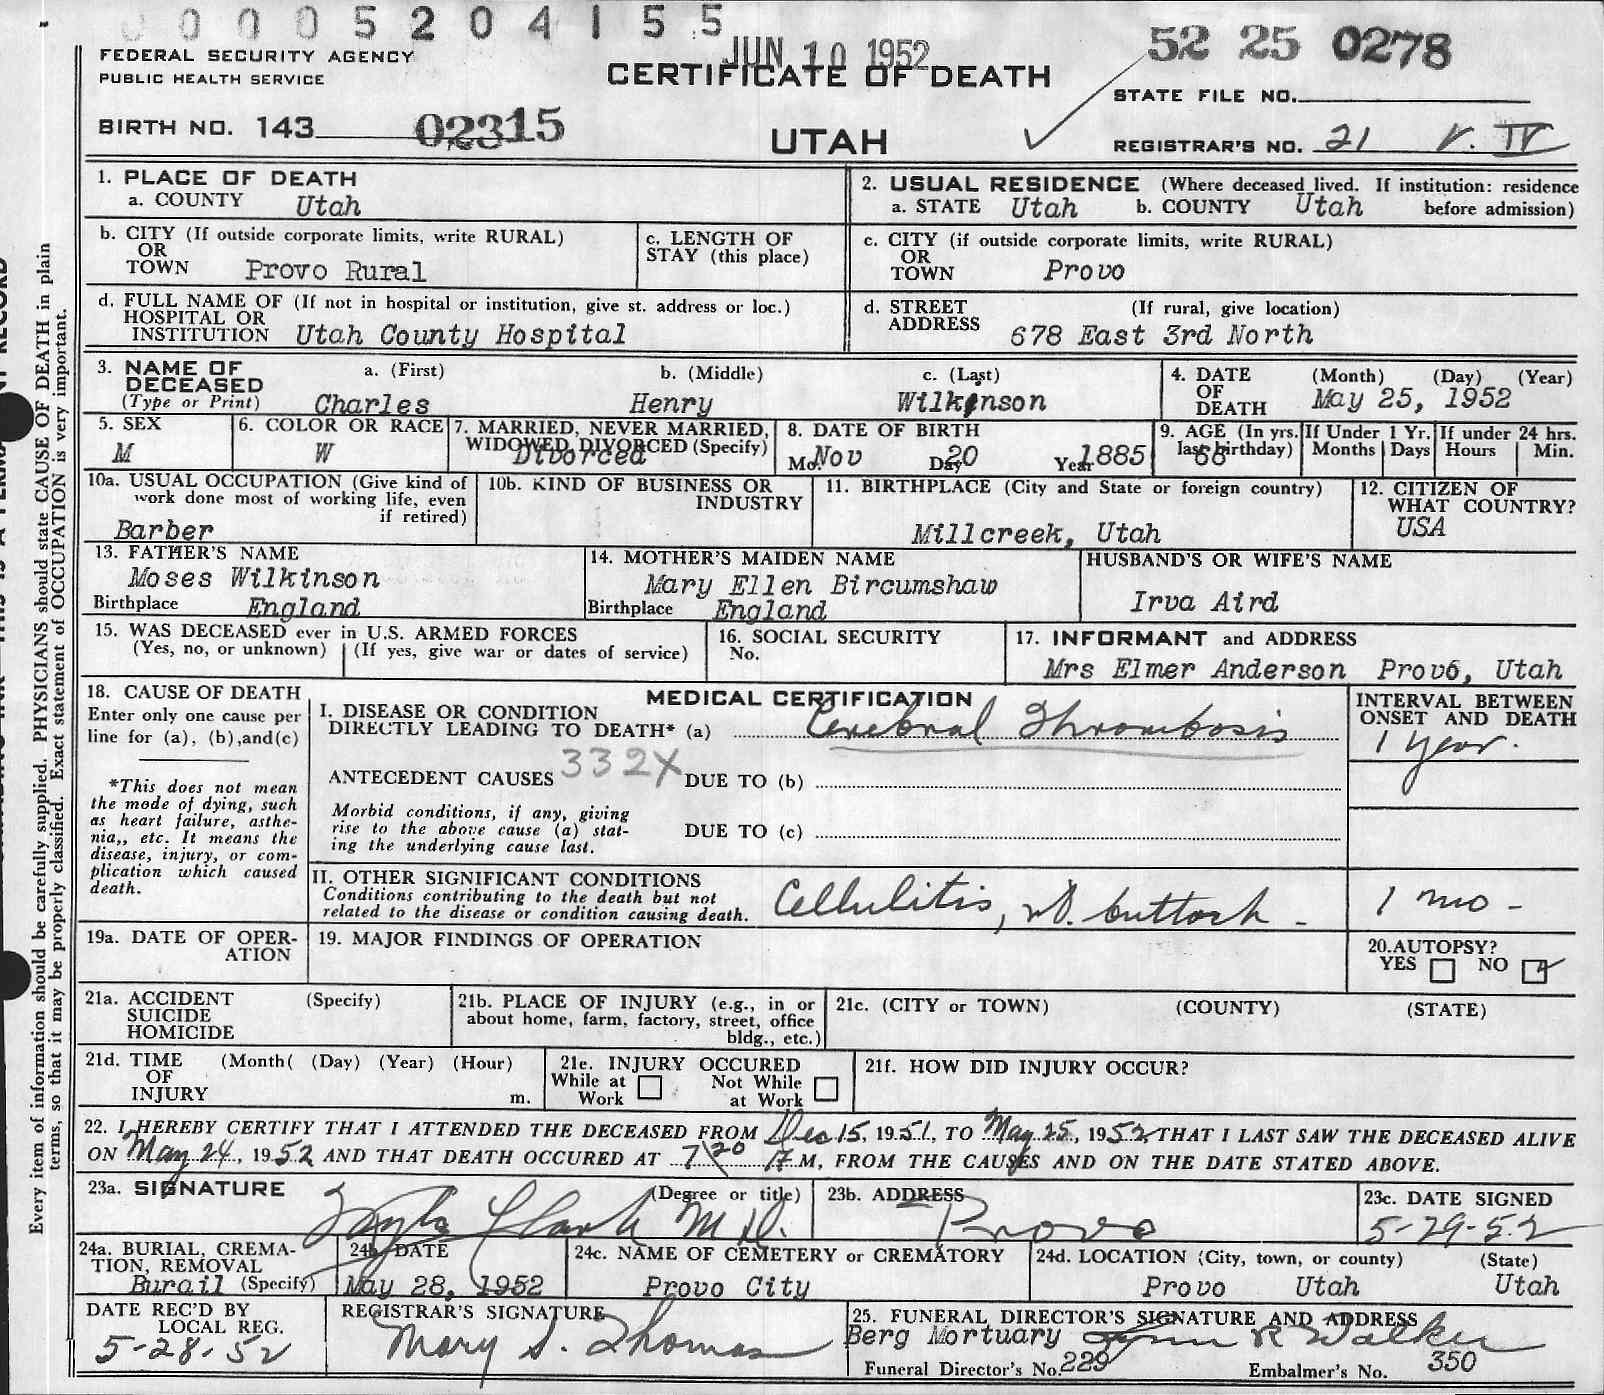 0 0 0 5 2 0 4 1 5 5 .5
JUN 10 1952
52 25 0278
FEDERAL SECURITY AGENCY
PUBLIC HEALTH SERVICE
CERTIFICATE OF DEATH
STATE FILE NO.
BIRTH NO. 143 02315
UTAH
REGISTRAR'S NO. 21 V. IV
1. PLACE OF DEATH
a. COUNTY Utah
2. USUAL RESIDENCE (Where deceased lived. If institution: residence
a. STATE Utah b. COUNTY Utah before admission)
b. CITY (If outside corporate limits, write RURAL)
OR
TOWN Provo Rural
c. LENGTH OF
STAY (this place)
c. CITY (if outside corporate limits, write RURAL)
OR
TOWN Provo
d. FULL NAME OF (If not in hospital or institution, give st. address or loc.)
HOSPITAL OR
INSTITUTION Utah County Hospital
d. STREET (If rural, give location)
ADDRESS 678 East 3rd North
3. NAME OF a. (First) b. (Middle) c. (Last)
DECEASED
(Type or Print) Charles Henry Wilkinson
4. DATE (Month) (Day) (Year)
OF
DEATH May 25, 1952
5. SEX
M
6. COLOR OR RACE
W
7. MARRIED, NEVER MARRIED,
WIDOWED, DIVORCED (Specify)
Divorced
8. DATE OF BIRTH
Mo. Nov Day 20 Year 1885
9. AGE (In yrs.
last birthday)
66
If Under 1 Yr.
Months Days
If under 24 hrs.
Hours Min.
10a. USUAL OCCUPATION (Give kind of
work done most of working life, even
if retired)
Barber
10b. KIND OF BUSINESS OR
INDUSTRY
11. BIRTHPLACE (City and State or foreign country)
Millcreek, Utah
12. CITIZEN OF
WHAT COUNTRY?
USA
13. FATHER'S NAME
Moses Wilkinson
Birthplace England
14. MOTHER'S MAIDEN NAME
Mary Ellen Bircumshaw
Birthplace England
HUSBAND'S OR WIFE'S NAME
Irva Aird
15. WAS DECEASED ever in U.S. ARMED FORCES
(Yes, no, or unknown) (If yes, give war or dates of service)
16. SOCIAL SECURITY
No.
17. INFORMANT and ADDRESS
Mrs Elmer Anderson Provo, Utah
18. CAUSE OF DEATH
Enter only one cause per
line for (a), (b),and(c)
*This does not mean
the mode of dying, such
as heart failure, asthe-
nia,, etc. It means the
disease, injury, or com-
plication which caused
death.
MEDICAL CERTIFICATION
I. DISEASE OR CONDITION
DIRECTLY LEADING TO DEATH* (a) Cerebral Thrombosis
INTERVAL BETWEEN
ONSET AND DEATH
1 year.
ANTECEDENT CAUSES 332X DUE TO (b)
Morbid conditions, if any, giving
rise to the above cause (a) stat-
ing the underlying cause last.
DUE TO (c)
II. OTHER SIGNIFICANT CONDITIONS
Conditions contributing to the death but not
related to the disease or condition causing death.
Cellulitis, rt. buttock - 1 mo -
19a. DATE OF OPER-
ATION
19. MAJOR FINDINGS OF OPERATION
20.AUTOPSY?
YES NO
21a. ACCIDENT (Specify)
SUICIDE
HOMICIDE
21b. PLACE OF INJURY (e.g., in or
about home, farm, factory, street, office
bldg., etc.)
21c. (CITY or TOWN) (COUNTY) (STATE)
21d. TIME (Month( (Day) (Year) (Hour)
OF
INJURY m.
21e. INJURY OCCURED
While at Not While
Work at Work
21f. HOW DID INJURY OCCUR?
22. I HEREBY CERTIFY THAT I ATTENDED THE DECEASED FROM Dec 15, 1951, TO May 25, 1952 THAT I LAST SAW THE DECEASED ALIVE
ON May 24, 1952 AND THAT DEATH OCCURED AT 7 20 M, FROM THE CAUSES AND ON THE DATE STATED ABOVE.
23a. SIGNATURE (Degree or title)
Clark M.D.
23b. ADDRESS
Provo
23c. DATE SIGNED
5-29-52
24a. BURIAL, CREMA-
TION, REMOVAL
Burail (Specify)
24b. DATE
May 28, 1952
24c. NAME OF CEMETERY or CREMATORY
Provo City
24d. LOCATION (City, town, or county) (State)
Provo Utah Utah
DATE REC'D BY
LOCAL REG.
5-28-52
REGISTRAR'S SIGNATURE
Mary S. Thomas
25. FUNERAL DIRECTOR'S SIGNATURE AND ADDRESS
Berg Mortuary R Walker
Funeral Director's No. 229 Embalmer's No. 350
Every item of information should be carefully supplied. PHYSICIANS should state CAUSE OF DEATH in plain
terms, so that it may be properly classified. Exact statement of OCCUPATION is very important.